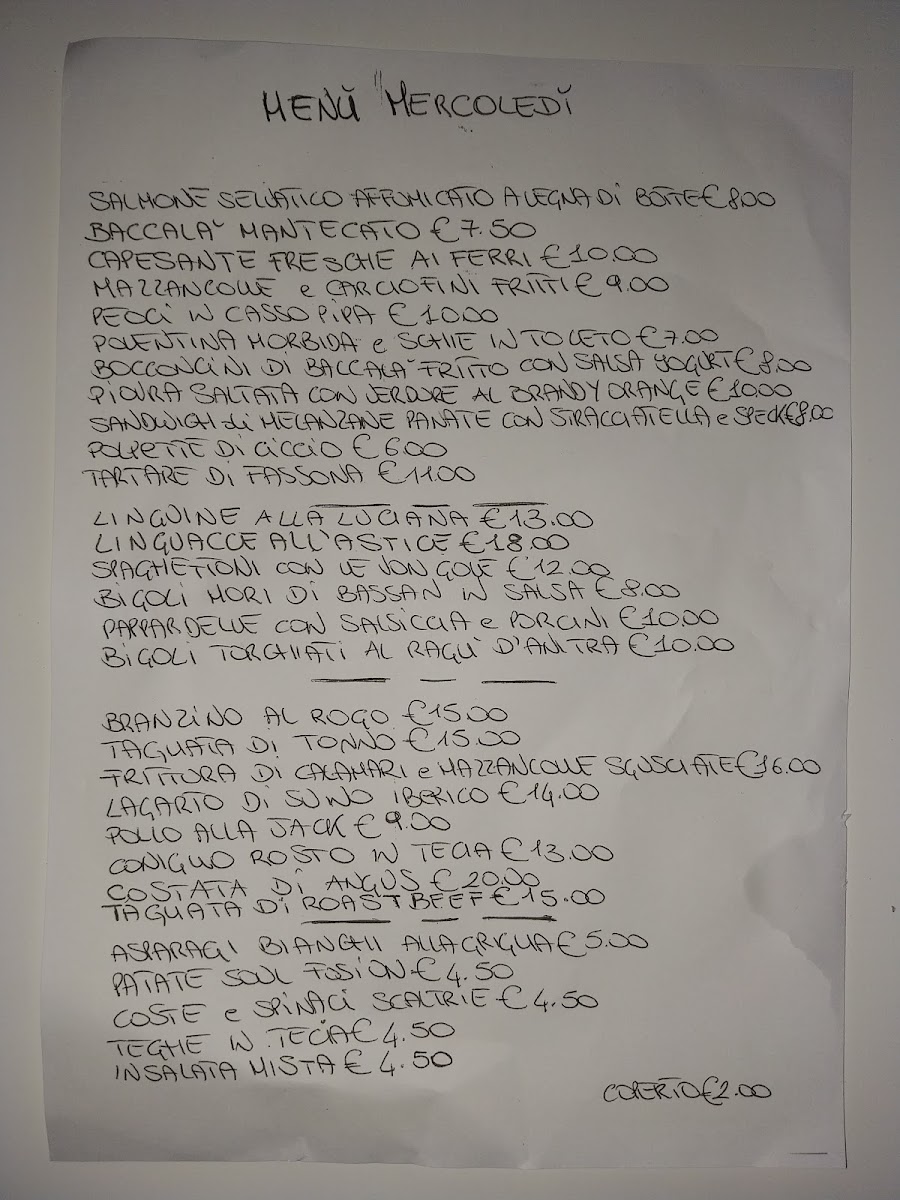 MENÙ "MERCOLEDÌ
SALMONE SELVATICO AFFUMICATO A LEGNA Di BOTTE € 8.00
BACCALA' MANTECATO € 7.50
CAPESANTE FRESCHE AI FERRI € 10.00
MAZZANCOLLE e CARCIOFINI FRITTI € 9.00
PEOCI IN CASSOPIPA € 10.00
POLENTINA MORBIDA e SCHIE IN TOCETO € 7.00
BOCCONCINI DI BACCALA' FRITTO CON SALSA YOGURT € 8.00
PIOVRA SALTATA CON VERDURE AL BRANDY ORANGE € 10.00
SANDWICH di MELANZANE PANATE CON STRACCIATELLA e SPECK € 8.00
POLPETTE Di CICCIO € 6.00
TARTARE DI FASSONA € 11.00
LINGUINE ALLA LUCIANA € 13.00
LINGUACCE ALL'ASTICE € 18.00
SPAGHETTONI CON LE VONGOLE € 12.00
BIGOLI MORI DI BASSAN IN SALSA € 8.00
PAPPARDELLE CON SALSICCIA e PORCINI € 10.00
BIGOLI TORCHIATI AL RAGU' D'ANITRA € 10.00
BRANZINO AL ROGO € 15.00
TAGLIATA DI TONNO € 15.00
FRITTURA DI CALAMARI e MAZZANCOLLE SGUSCIATE € 16.00
LAGARTO DI SUINO IBERICO € 14.00
POLLO ALLA JACK € 9.00
CONIGLIO ROSTO IN TECIA € 13.00
COSTATA DI ANGUS € 20.00
TAGLIATA DI ROAST BEEF € 15.00
ASPARAGI BIANCHI ALLA GRIGLIA € 5.00
PATATE SOUL FUSION € 4.50
COSTE e SPINACI SCALTRIE € 4.50
TEGHE IN TECIA € 4.50
INSALATA MISTA € 4.50
COPERTO € 2.00